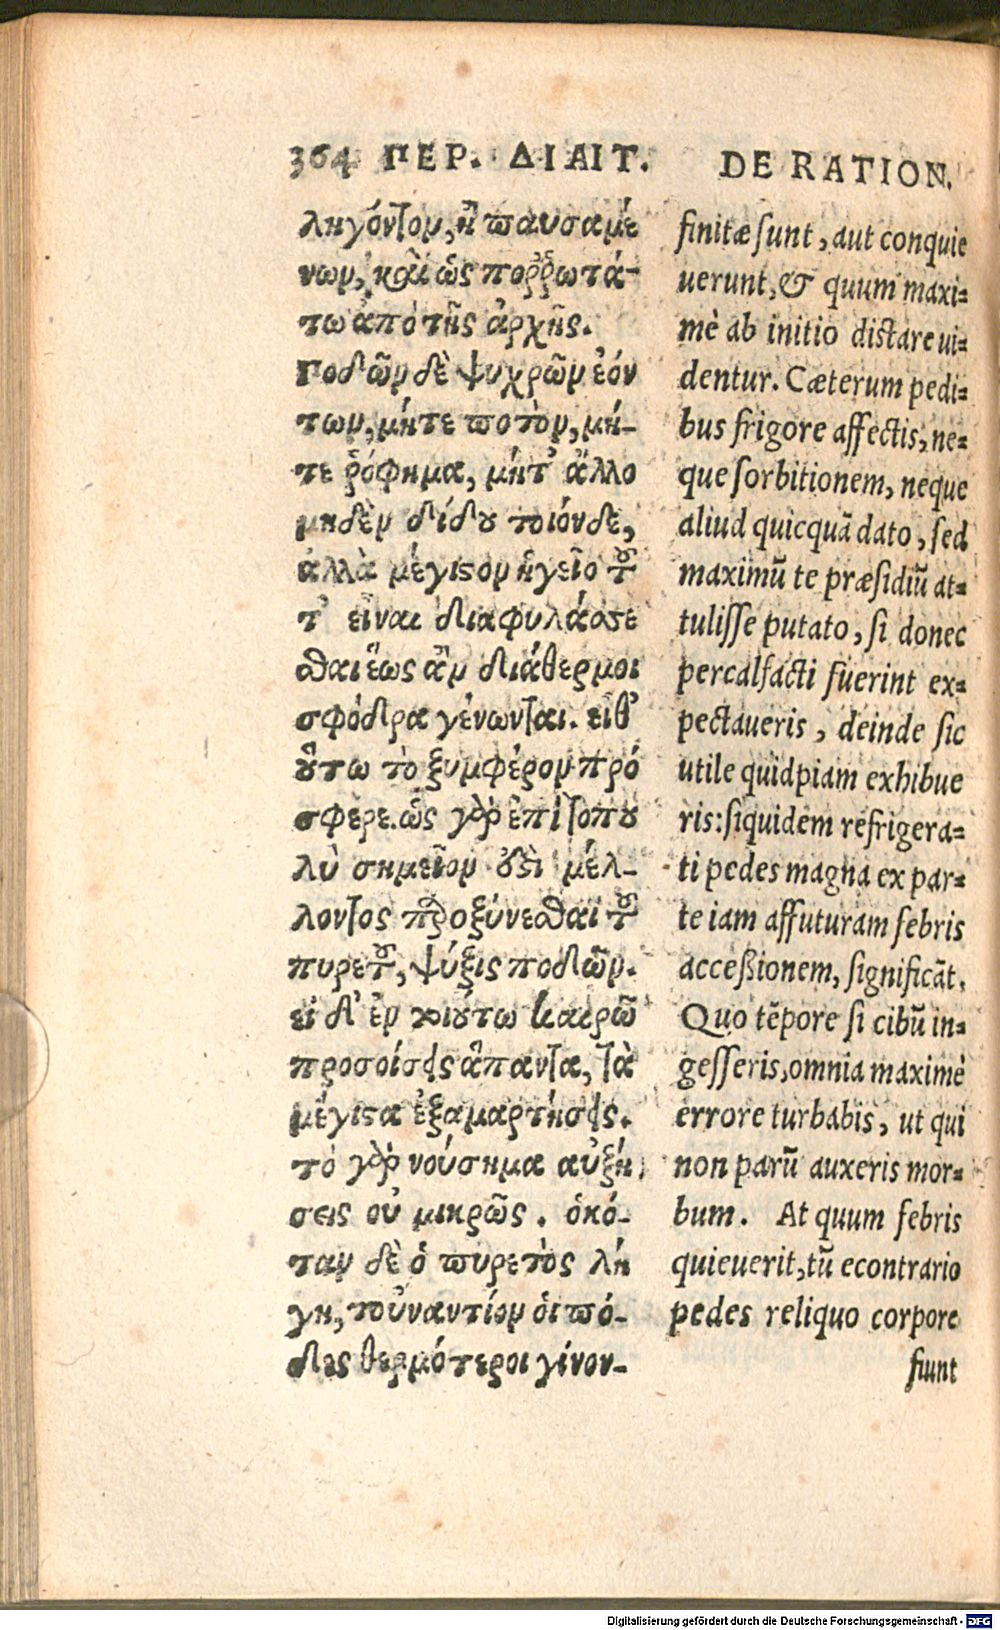 364 ΠΕΡ. ΔΙΑΙΤ. DE RATION.
ληγόντων, ἢ παυσαμέ
νων, καὶ ὡς ποῤῥωτά-
τω ἀπὸ τῆς ἀρχῆς.
Ποδῶν δὲ ψυχρῶν ἐόν
των, μήτε ποτὸν, μή-
τε ῥόφημα, μήτ' ἄλλο
μηδὲν δίδου τοιόνδε,
ἀλλὰ μέγιστον ἡγεῖο τοῦ
τ' εἶναι διαφυλάσσε
σθαι ἕως ἂν διάθερμοι
σφόδρα γένωνται. εἶθ'
οὕτω τὸ ξυμφέρον πρό
σφερε. ὡς γὰρ ἐπὶ τοπου
λὺ σημεῖον ὅδε μέλ-
λοντος παροξύνεσθαι τοῦ
πυρετοῦ, ψύξις ποδῶν.
εἰ δ' ἐν τοιούτω καιρῶ
προσοίσεις ἅπαντα, τὰ
μέγιστα ἐξαμαρτήσεις.
τὸ γὰρ νούσημα αὐξή
σεις οὐ μικρῶς. ὁκό-
ταν δὲ ὁ πυρετὸς λή
γη, τοὐναντίον οἱ πό-
δες θερμότεροι γίνον-
finitæ sunt, aut conquie
uerunt, & quum maxi-
mè ab initio distare ui-
dentur. Cæterum pedi-
bus frigore affectis, ne-
que sorbitionem, neque
aliud quicquã dato, sed
maximũ te præsidiũ at-
tulisse putato, si donec
percalfacti fuerint ex-
pectaueris, deinde sic
utile quidpiam exhibue
ris: siquidem refrigera-
ti pedes magna ex par-
te iam affuturam febris
acceßionem, significãt.
Quo tẽpore si cibũ in-
gesseris, omnia maximè
errore turbabis, ut qui
non parũ auxeris mor-
bum. At quum febris
quieuerit, tũ econtrario
pedes reliquo corpore
fiunt
Digitalisierung gefördert durch die Deutsche Forschungsgemeinschaft - DFG